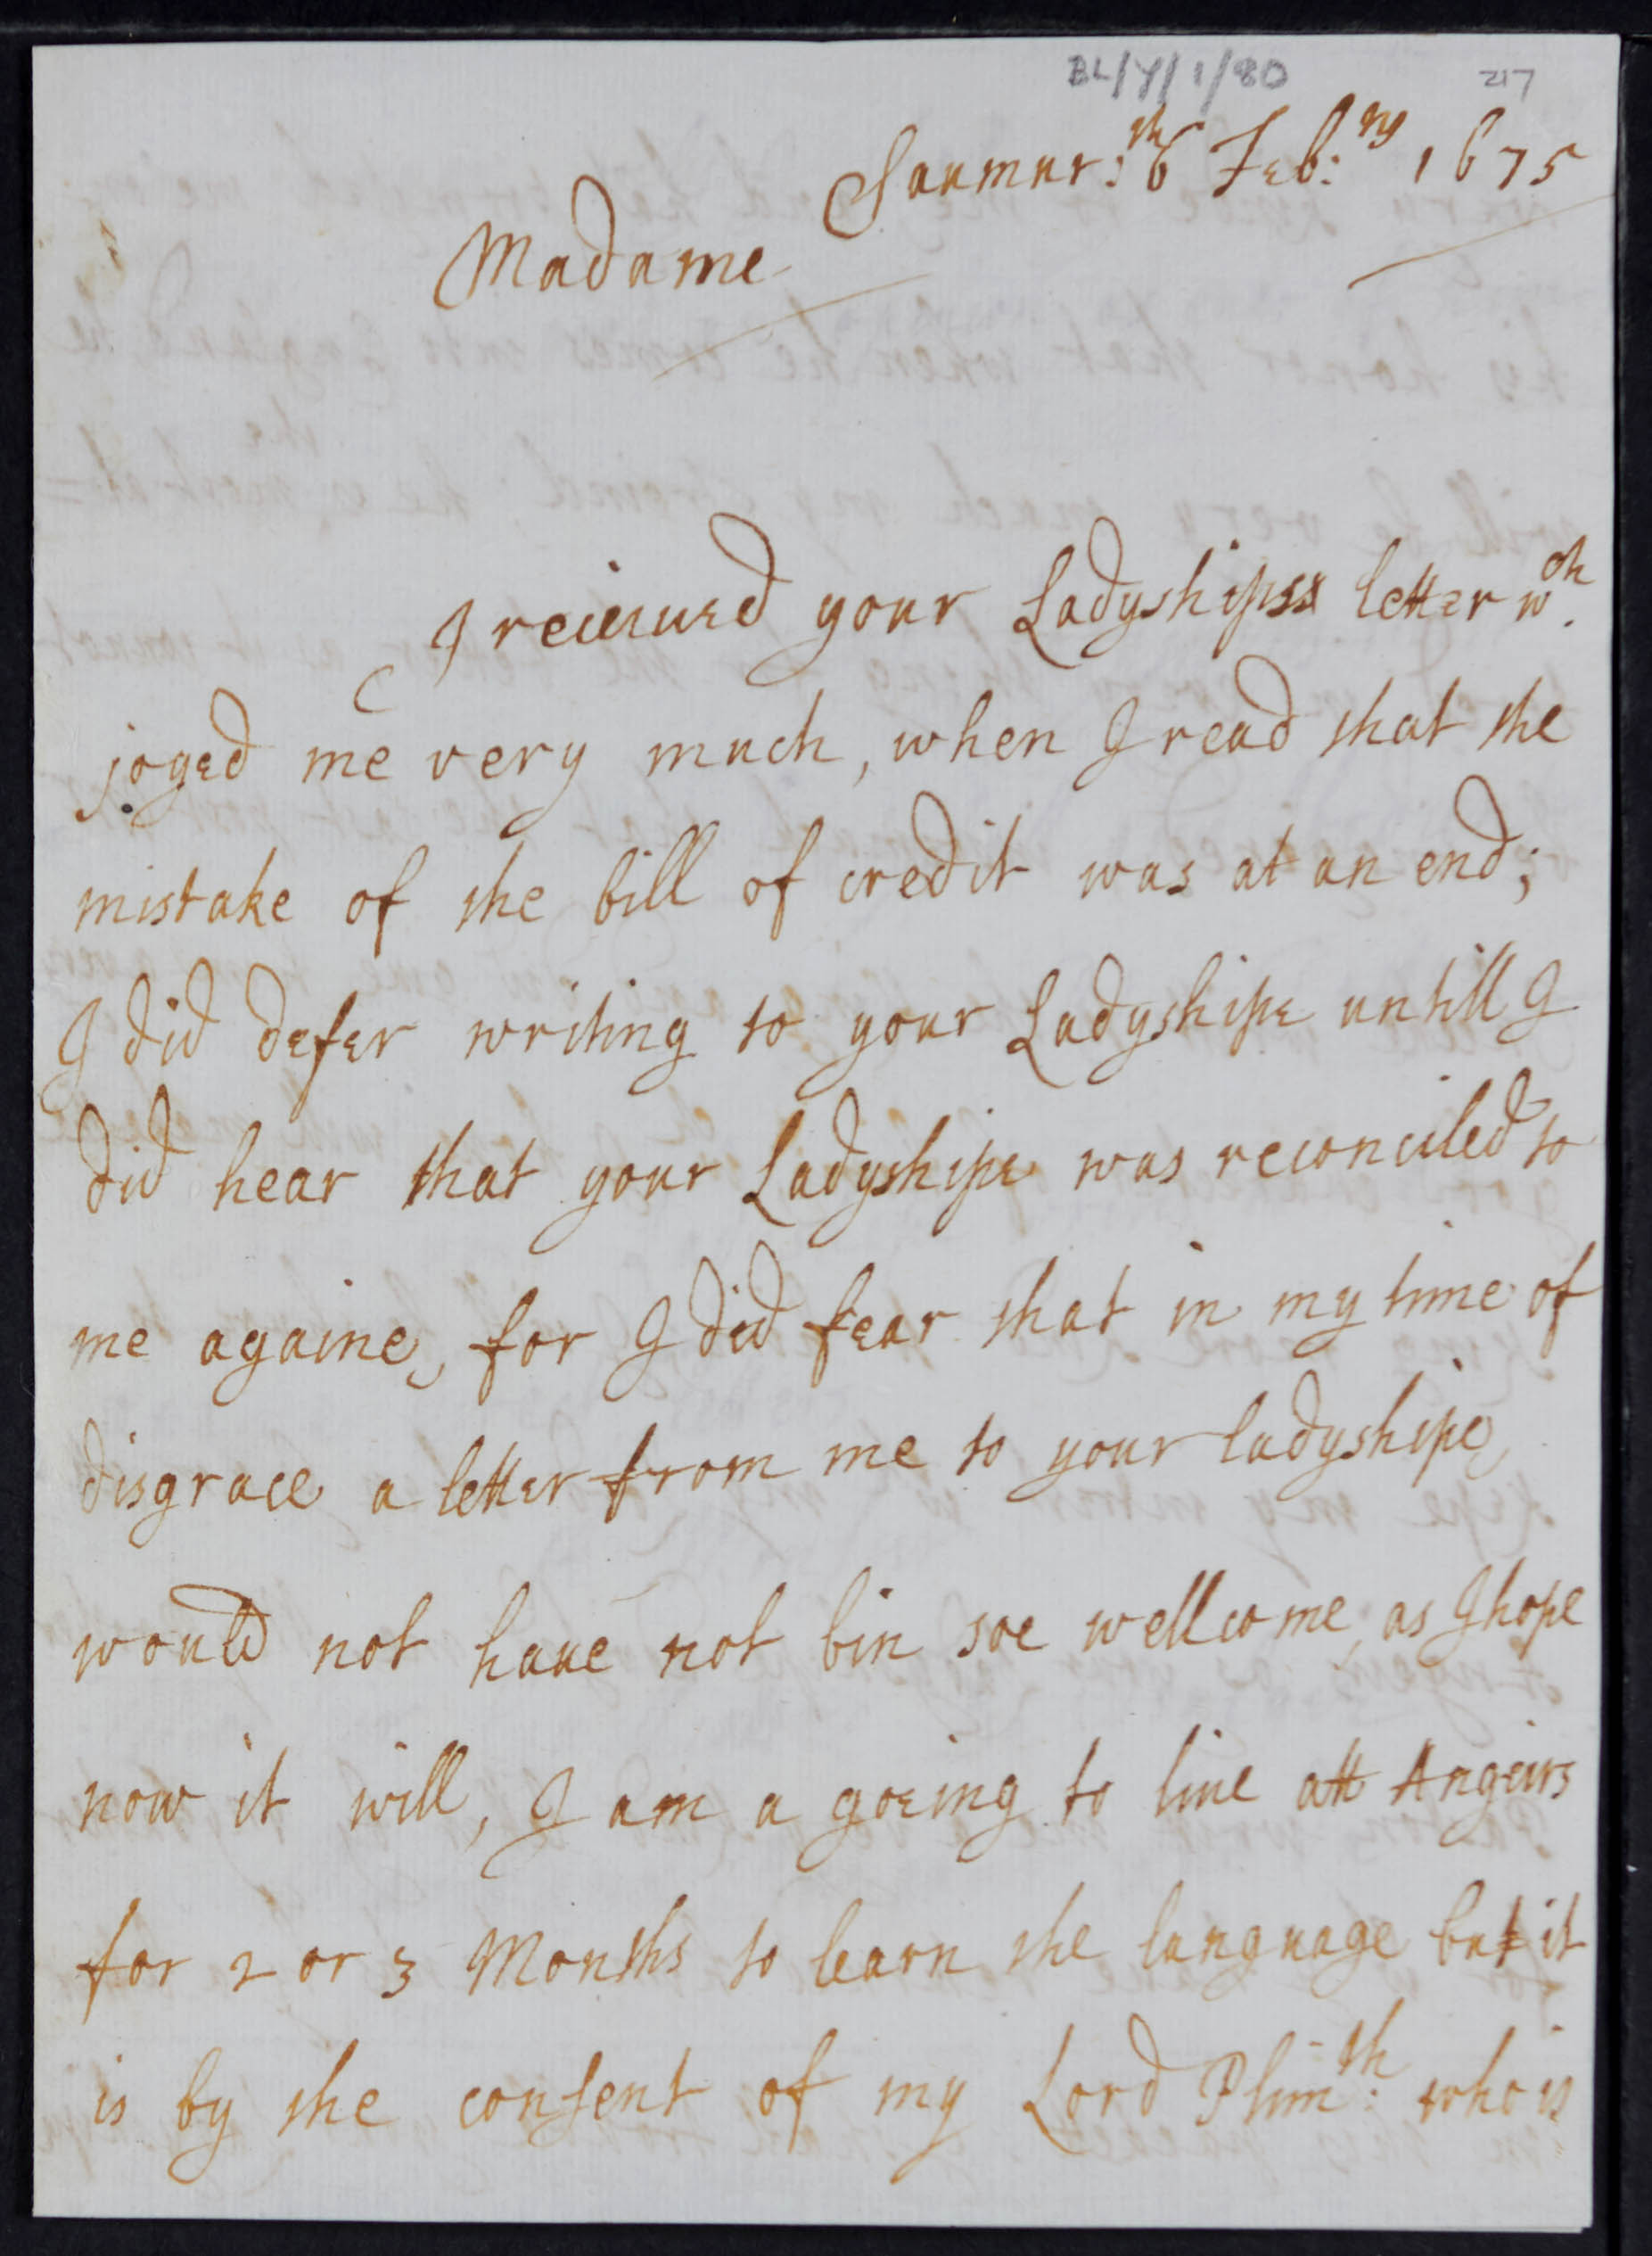 BL/Y/1/80 217
Saumur: 6th Feb:ry 1675
Madame
I receiued your Ladyshipes letter wch.
joyed me very much, when I read that the
mistake of the bill of credit was at an end;
I did defer writing to your Ladyshipe untill I
did hear that your Ladyshipe was reconciled to
me againe, for I did fear that in my time of
disgrace a letter from me to your ladyshipe,
would not haue not bin soe wellcome, as I hope
now it will, I am a goeing to liue att Angeirs
for 2 or 3 Months to learn the language but it
is by the consent of my Lord Plimth: who is